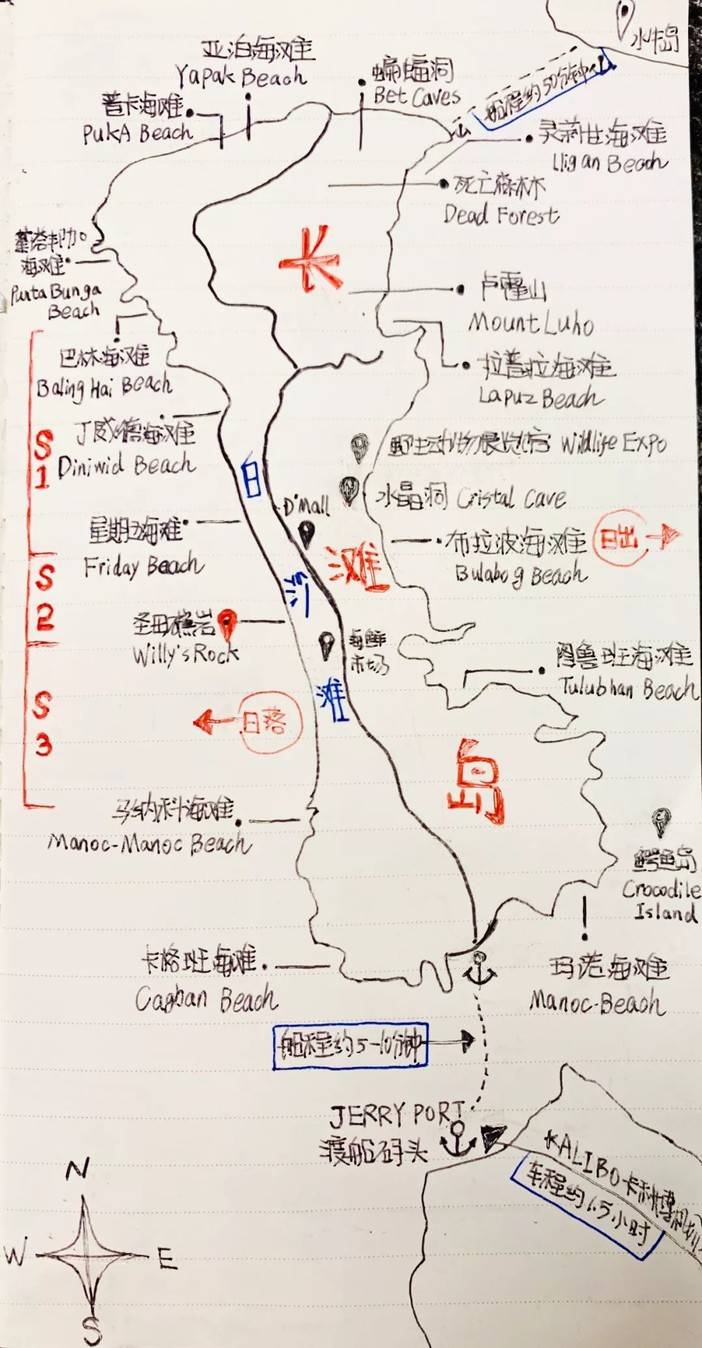 水牛岛
亚泊海滩
Yapak Beach
蝙蝠洞
Bet Caves
船程约50分钟
普卡海滩
PukA Beach
海滩
Lligan Beach
死亡森林
Dead Forest
长
海滩
Punta Bunga
Beach
卢霍山
Mount Luho
巴林海滩
Baling Hai Beach
拉普拉海滩
Lapuz Beach
S1
丁威德海滩
Diniwid Beach
野生动物展览馆 Wildlife Expo
白
水晶洞 Cristal Cave
D'Mall
星期五海滩
Friday Beach
滩
布拉波海滩
Bulabog Beach
日出
S2
沙
圣母礁岩
Willy's Rock
海鲜
市场
图鲁班海滩
Tulubhan Beach
滩
S3
日落
岛
马纳科海滩
Manoc-Manoc Beach
鳄鱼岛
Crocodile
Island
卡格班海滩
Cagban Beach
玛诺海滩
Manoc-Beach
船程约5-10分钟
JERRY PORT
渡船码头
KALIBO 卡利博机场
车程约1.5小时
N
W
E
S